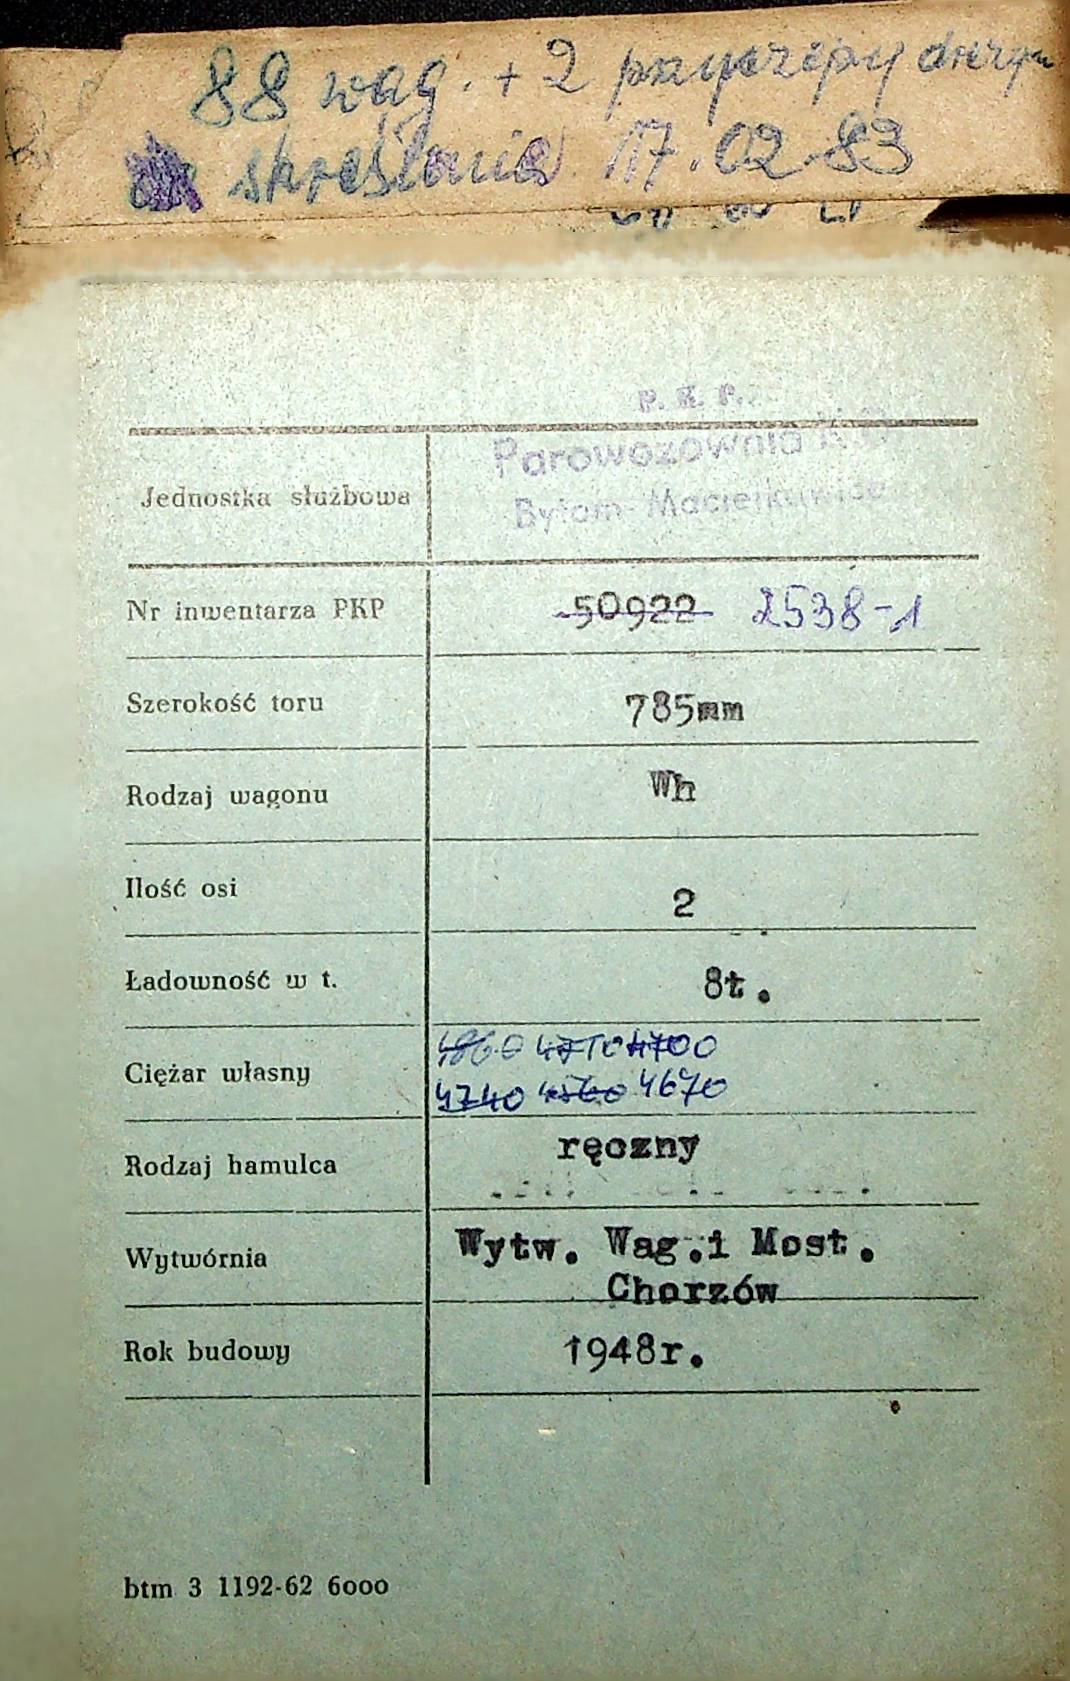 88 wag. + 2 przyczepy drezyn
skreślania 17.02.83
P. K. P.
Parowozownia K.D
Jednostka służbowa
Bytom-Maciejkowice
Nr inwentarza PKP 50922 2538-1
Szerokość toru 785mm
Rodzaj wagonu Wh
Ilość osi 2
Ładowność w t. 8t.
4860 4710 4700
Ciężar własny
4740 4560 4670
Rodzaj hamulca ręczny
Wytwórnia Wytw. Wag.i Most.
Chorzów
Rok budowy 1948r.
btm 3 1192-62 6000